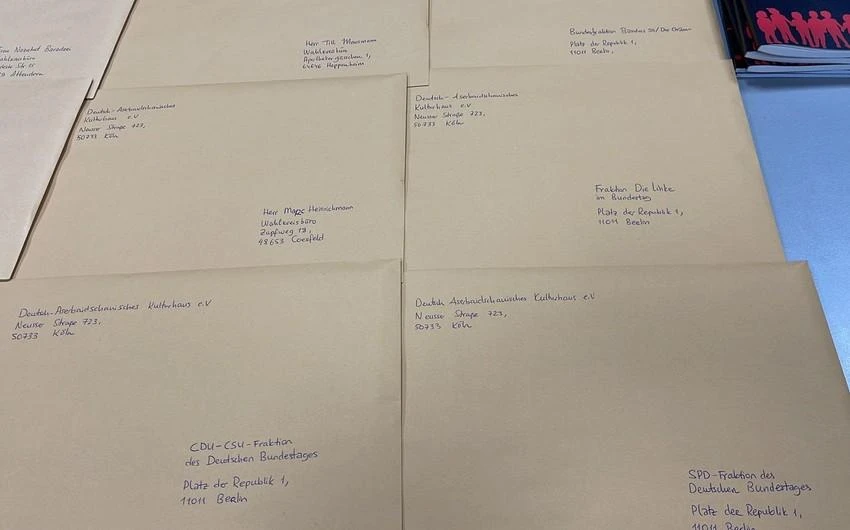 Nozohat
Str. 15
Attendorn
Herr Till Mansmann
Wahlkreisbüro
64646 Heppenheim
Bundesfraktion Bündnis 90/Die Grünen
Platz der Republik 1,
11011 Berlin,
Deutsch-Aserbaidschanisches
Kulturhaus e.V
Neusse Straße 723,
50733 Köln
Herr Marc Heinrichmann
Wahlkreisbüro
Zapfweg 18,
48653 Coesfeld
Deutsch-Aserbaidschanisches
Kulturhaus e.V
Neusse Straße 723,
50733 Köln
Fraktion Die Linke
im Bundestag
Platz der Republik 1,
11011 Berlin
Deutsch-Aserbaidschanisches Kulturhaus e.V
Neusse Straße 723,
50733 Köln
CDU-CSU-Fraktion
des Deutschen Bundestages
Platz der Republik 1,
11011 Berlin
Deutsch Aserbaidschanisches Kulturhaus e.V
Neusse Straße 723,
50733 Köln
SPD-Fraktion des
Deutschen Bundestages
Platz der Republik 1,
11011 Berlin